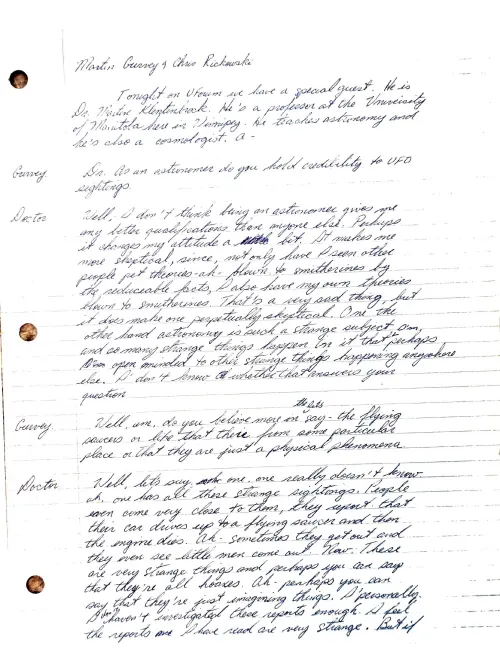 Martin Gurvey & Chris Rickowski
Tonight on Uforum we have a special guest. He is
Dr. Martin He's a professor at the University
of Manitoba here in Winnipeg. He teaches astronomy and
he's also a cosmologist. a -
Gurvey Dr. As an astronomer do you hold credibility to UFO
sightings.
Doctor Well, I don't think being an astronomer gives me
any better qualifications than anyone else. Perhaps
it changes my attitude a bit. It makes me
more skeptical, since, not only have I seen other
people pet theories -ah- blown to smitherines by
the reduceable facts, I also have my own theories
blown to smitherines. That is a very sad thing, but
it does make one perpetually skeptical. One the
other hand astronomy is such a strange subject,
and so many strange things happen in it that perhaps
I'm open minded to other strange things happening anywhere
else. I don't know whether that answers your
question
Gurvey Well, um, do you believe more in the lets say - the flying
saucers or life that there from some particular
place or that they are just a physical phenomena
Doctor Well, lets say, one, one really doesn't know
ah, one has all these strange sightings. People
even come very close to them, they report that
their car drives up to a flying saucer and then
the engine dies. Ah - sometimes they get out and
they even see little men come out. Now these
are very strange things and perhaps you can say
that they're all hoaxes. Ah - perhaps you can
say that they're just imagining things. I personally
haven't investigated these reports enough. I feel
the reports I have read are very strange. But if